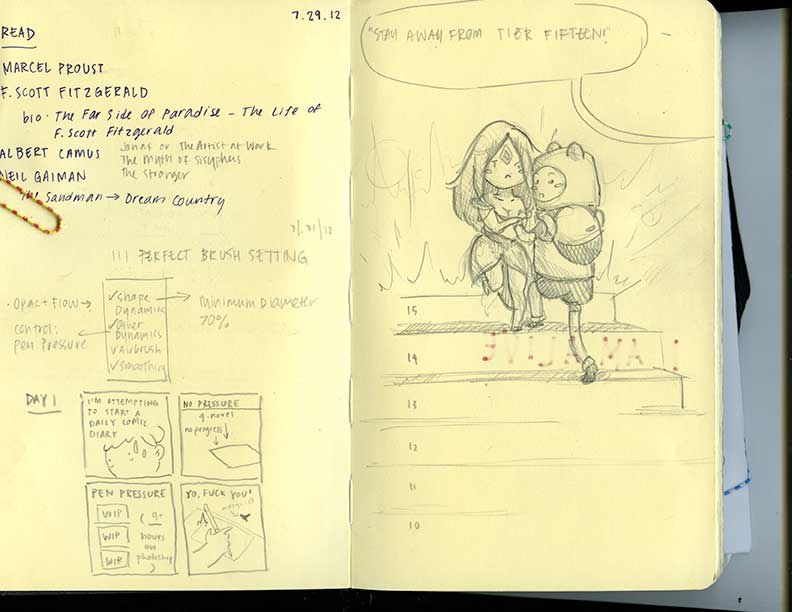 7.29.12
READ
MARCEL PROUST
F. SCOTT FITZGERALD
bio · The Far Side of Paradise — The Life of
F. Scott Fitzgerald
ALBERT CAMUS
Jonas or The Artist at Work
The Myth of Sisyphus
The Stranger
NEIL GAIMAN
The Sandman → Dream Country
7/.31/12
!!! PERFECT BRUSH SETTING
· OPAC + FLOW →
control:
pen pressure
✓ Shape
Dynamics
✓ Other
Dynamics
✓ Airbrush
✓ Smoothing
Minimum Diameter
70%
DAY 1
I'M ATTEMPTING
TO START A
DAILY COMIC
DIARY
NO PRESSURE
g. novel
no progress
PEN PRESSURE
WIP
WIP
WIP
( 9+
hours
on
photoshop
)
YO, FUCK YOU!
"STAY AWAY FROM TIER FIFTEEN!"
15
14
I AM ALIVE
13
12
11
10